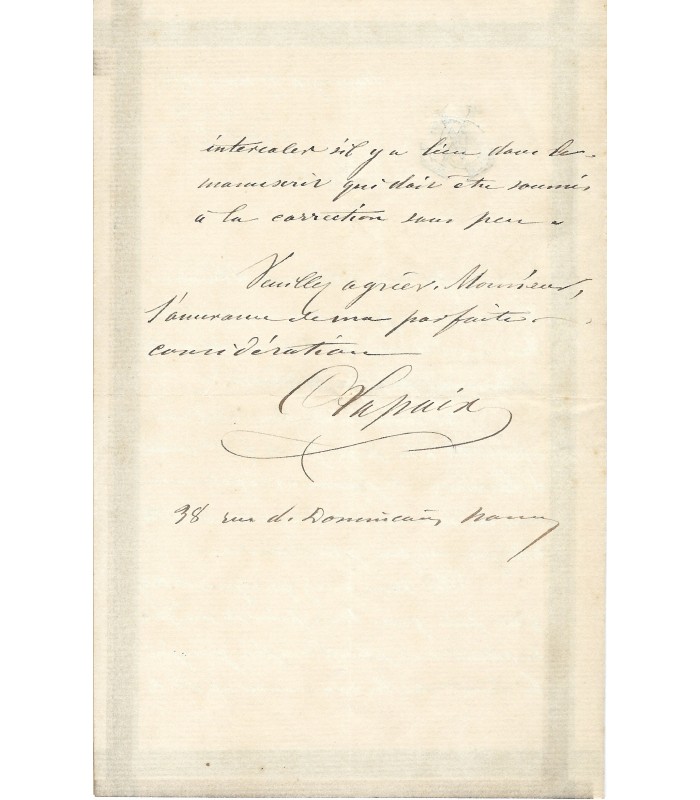 intercaler s'il y a lieu dans le
manuscrit qui doit être soumis
à la correction sous peu.
Veuillez agréer, Monsieur,
l'assurance de ma parfaite
considération
C Lapaix
38 rue des Dominicains Nancy